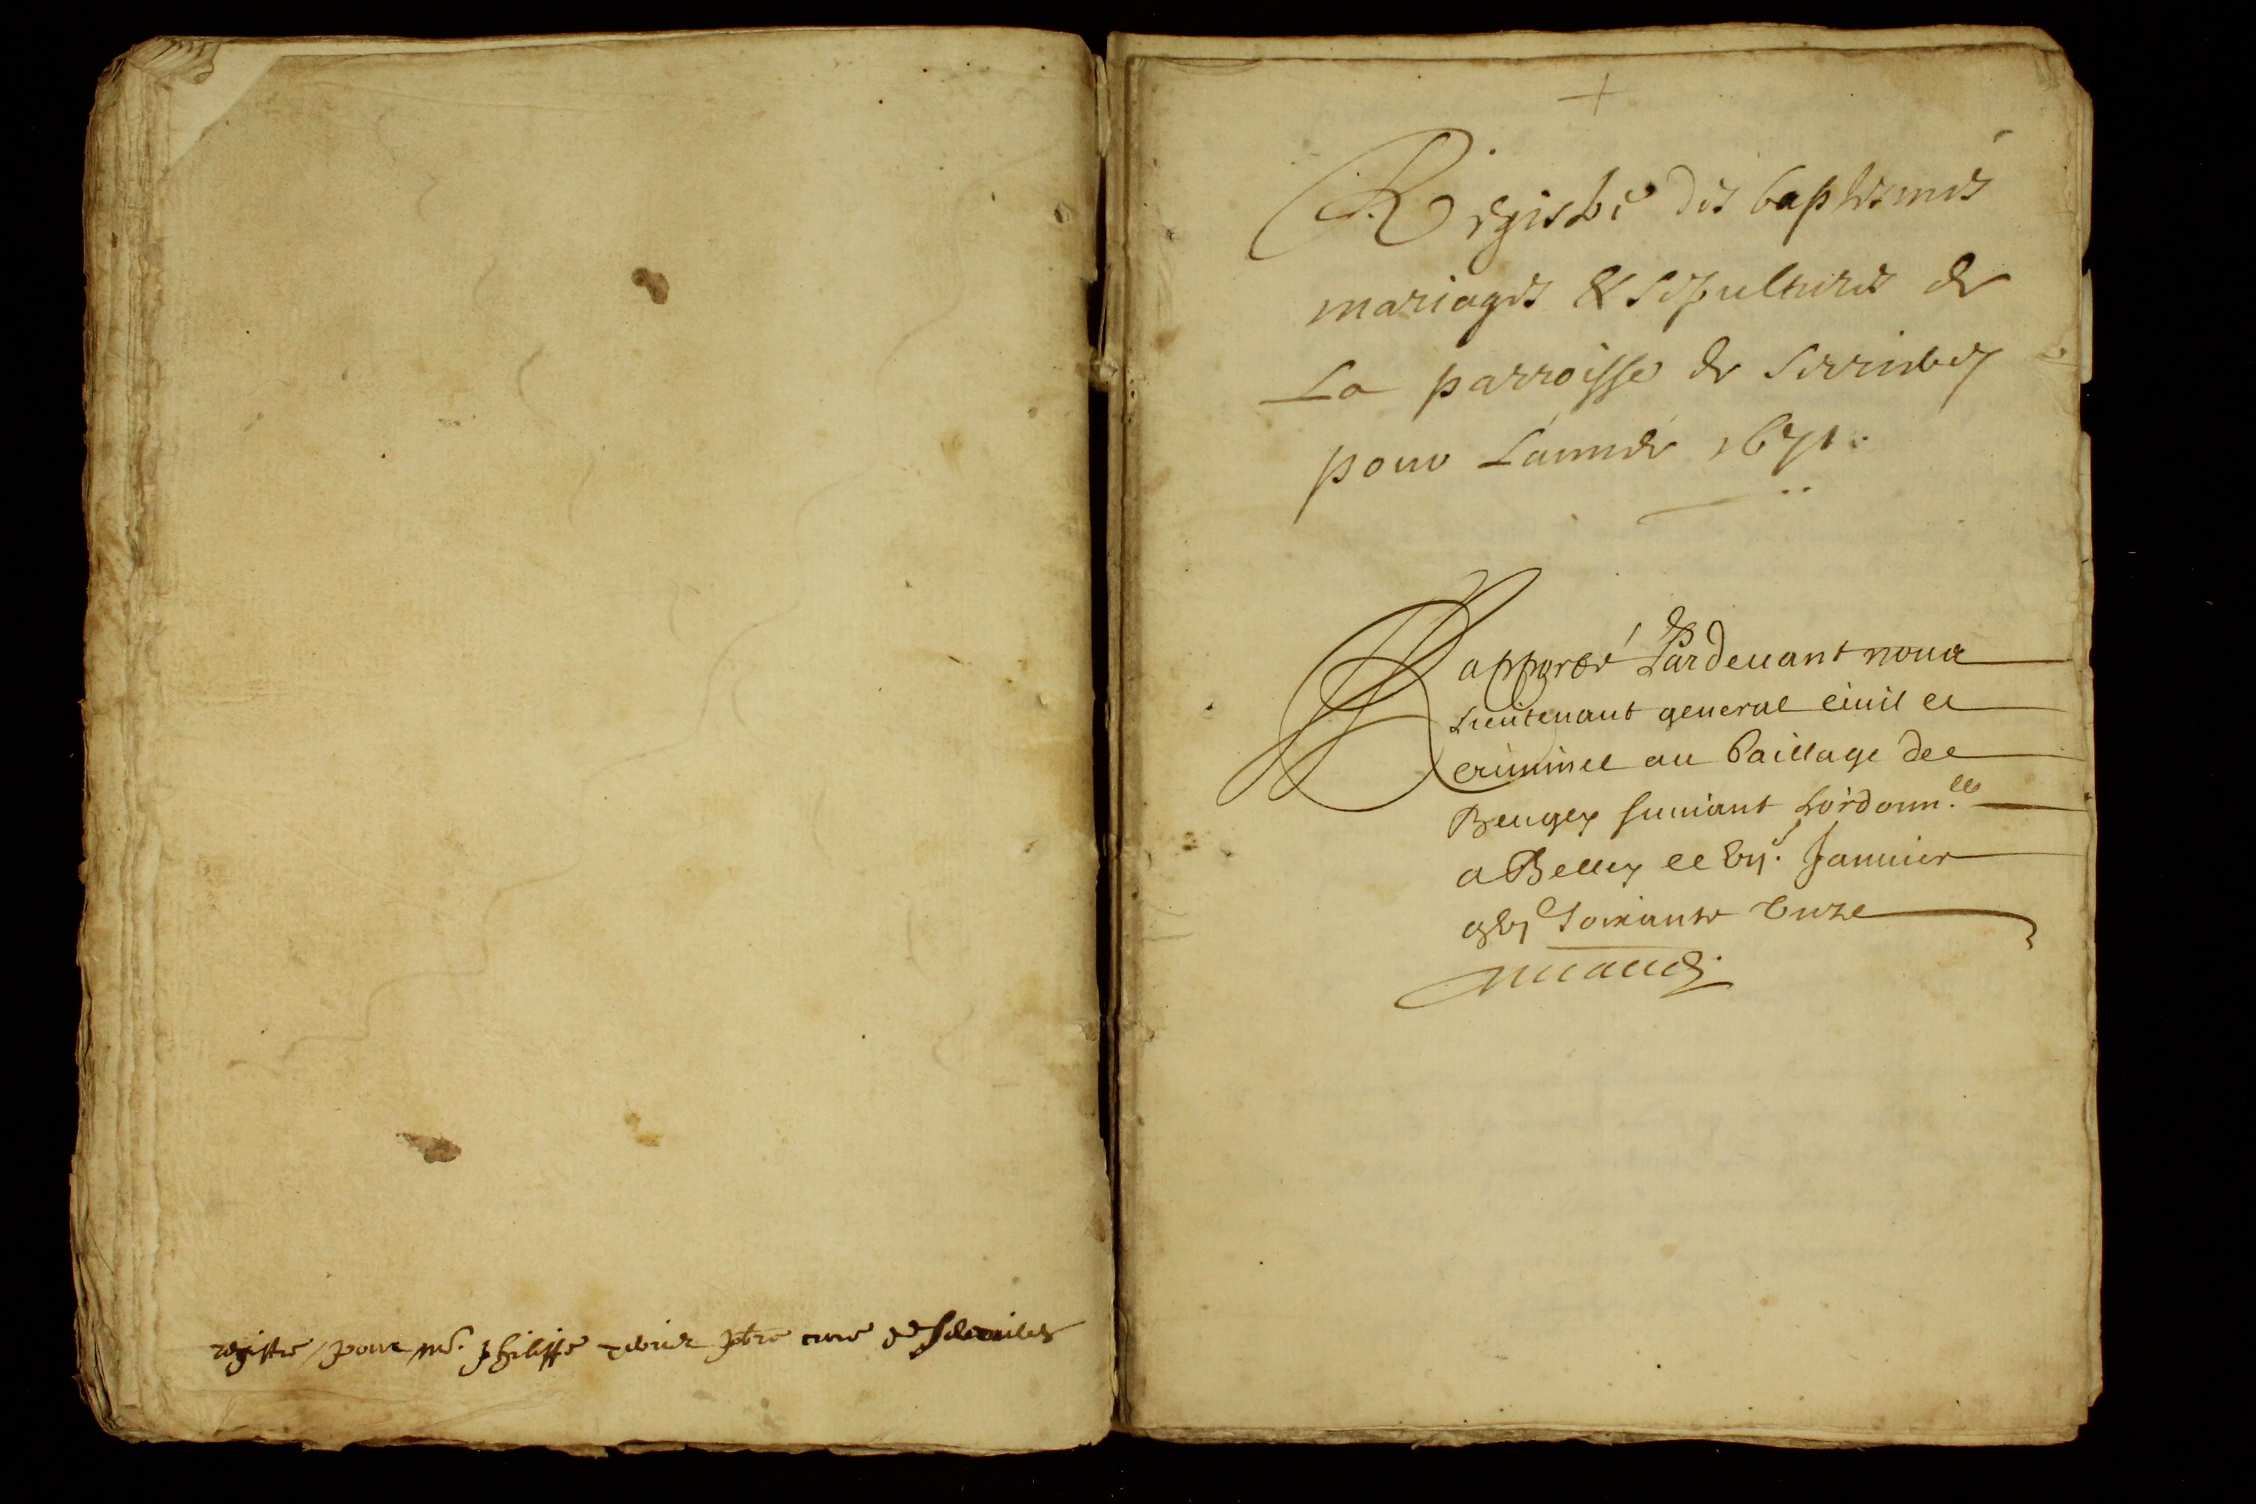 registre pour mre. philippe ptre cure de
+
Registre des baptesmes
mariages & sepultures de
La parroisse de
pour L'année 1671.
Rapporté Pardeuant nous
Lieutenant general ciuil et
criminel au Baillage de
Beugey suiuant Lordonn.ce
a Belley le vij.e Januier
xvj Soixante Onze